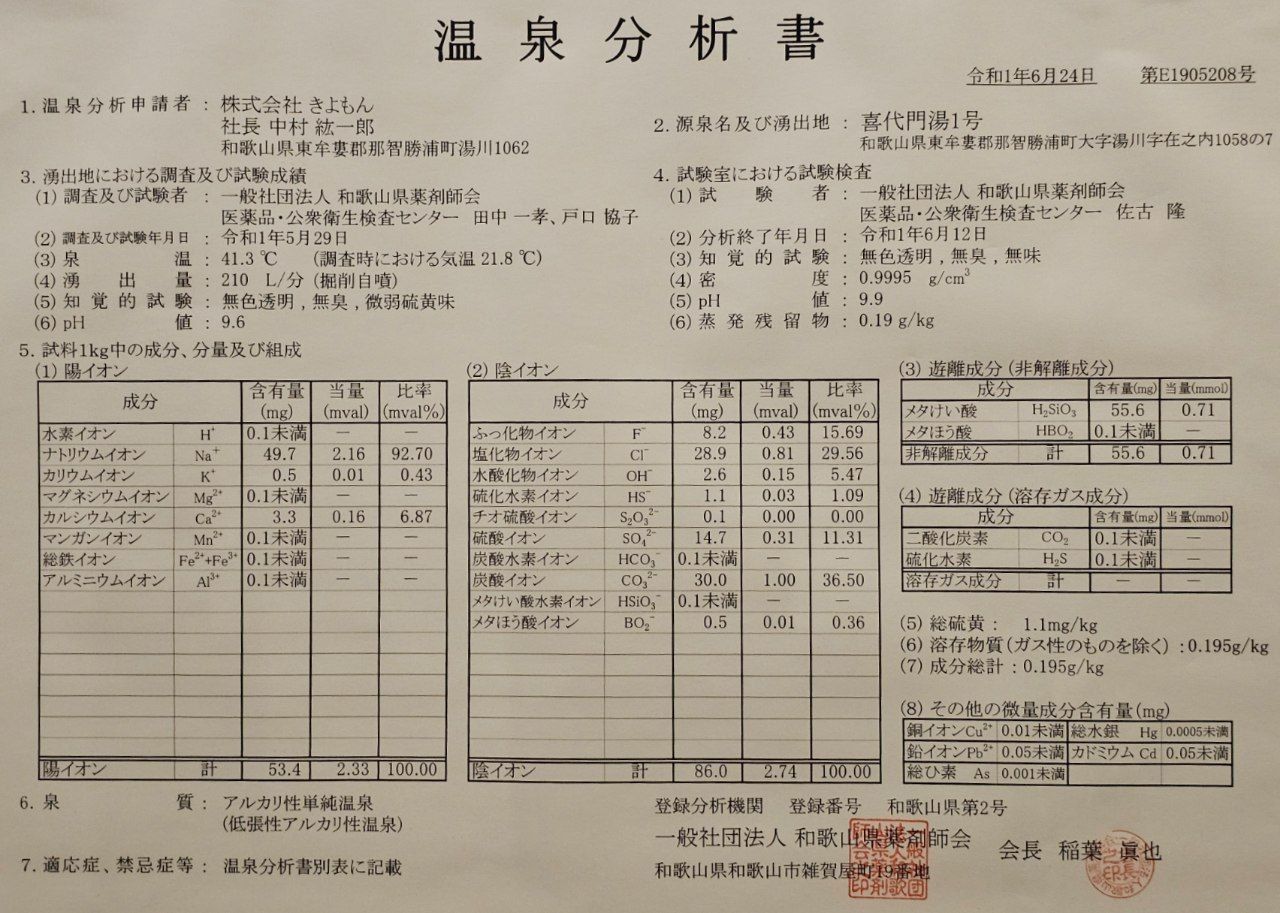 温泉分析書
令和1年6月24日 第E1905208号
1. 温泉分析申請者 : 株式会社 きよもん
社長 中村 紘一郎
和歌山県東牟婁郡那智勝浦町湯川1062
2. 源泉名及び湧出地 : 喜代門湯1号
和歌山県東牟婁郡那智勝浦町大字湯川字在之内1058の7
3. 湧出地における調査及び試験成績
(1) 調査及び試験者 : 一般社団法人 和歌山県薬剤師会
医薬品・公衆衛生検査センター 田中 一孝、戸口 協子
(2) 調査及び試験年月日 : 令和1年5月29日
(3) 泉温 : 41.3 ℃ (調査時における気温 21.8 ℃)
(4) 湧出量 : 210 L/分 (掘削自噴)
(5) 知覚的試験 : 無色透明 , 無臭 , 微弱硫黄味
(6) pH値 : 9.6
4. 試験室における試験検査
(1) 試験者 : 一般社団法人 和歌山県薬剤師会
医薬品・公衆衛生検査センター 佐古 隆
(2) 分析終了年月日 : 令和1年6月12日
(3) 知覚的試験 : 無色透明 , 無臭 , 無味
(4) 密度 : 0.9995 g/cm³
(5) pH値 : 9.9
(6) 蒸発残留物 : 0.19 g/kg
5. 試料1kg中の成分、分量及び組成
(1) 陽イオン
成分 含有量(mg) 当量(mval) 比率(mval%)
水素イオン H⁺ 0.1未満 － －
ナトリウムイオン Na⁺ 49.7 2.16 92.70
カリウムイオン K⁺ 0.5 0.01 0.43
マグネシウムイオン Mg²⁺ 0.1未満 － －
カルシウムイオン Ca²⁺ 3.3 0.16 6.87
マンガンイオン Mn²⁺ 0.1未満 － －
総鉄イオン Fe²⁺+Fe³⁺ 0.1未満 － －
アルミニウムイオン Al³⁺ 0.1未満 － －
陽イオン 計 53.4 2.33 100.00
(2) 陰イオン
成分 含有量(mg) 当量(mval) 比率(mval%)
ふっ化物イオン F⁻ 8.2 0.43 15.69
塩化物イオン Cl⁻ 28.9 0.81 29.56
水酸化物イオン OH⁻ 2.6 0.15 5.47
硫化水素イオン HS⁻ 1.1 0.03 1.09
チオ硫酸イオン S₂O₃²⁻ 0.1 0.00 0.00
硫酸イオン SO₄²⁻ 14.7 0.31 11.31
炭酸水素イオン HCO₃⁻ 0.1未満 － －
炭酸イオン CO₃²⁻ 30.0 1.00 36.50
メタけい酸水素イオン HSiO₃⁻ 0.1未満 － －
メタほう酸イオン BO₂⁻ 0.5 0.01 0.36
陰イオン 計 86.0 2.74 100.00
(3) 遊離成分 (非解離成分)
成分 含有量(mg) 当量(mmol)
メタけい酸 H₂SiO₃ 55.6 0.71
メタほう酸 HBO₂ 0.1未満 －
非解離成分 計 55.6 0.71
(4) 遊離成分 (溶存ガス成分)
成分 含有量(mg) 当量(mmol)
二酸化炭素 CO₂ 0.1未満 －
硫化水素 H₂S 0.1未満 －
溶存ガス成分 計 － －
(5) 総硫黄 : 1.1mg/kg
(6) 溶存物質 (ガス性のものを除く) : 0.195g/kg
(7) 成分総計 : 0.195g/kg
(8) その他の微量成分含有量(mg)
銅イオンCu²⁺ 0.01未満 総水銀 Hg 0.0005未満
鉛イオンPb²⁺ 0.05未満 カドミウム Cd 0.05未満
総ひ素 As 0.001未満
6. 泉質 : アルカリ性単純温泉
(低張性アルカリ性温泉)
7. 適応症、禁忌症等 : 温泉分析書別表に記載
登録分析機関 登録番号 和歌山県第2号
一般社団法人 和歌山県薬剤師会 会長 稲葉 眞也
和歌山県和歌山市雑賀屋町19番地